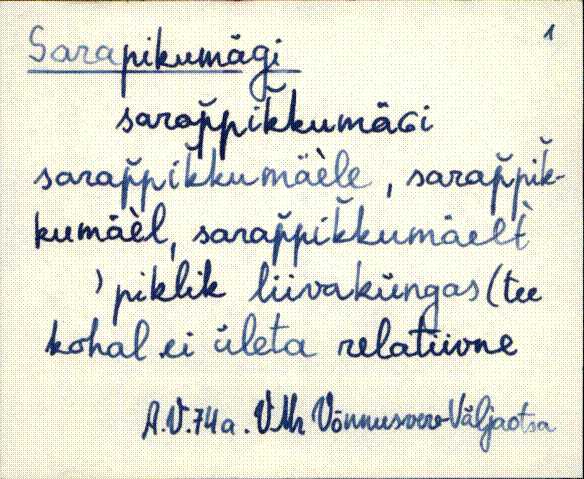 1
Sarapikumägi
sarap̆pik̆kumäGi
sarap̆pik̆kumäèle, sarap̆pik̆-
kumäèl, sarap̆pik̆kumäelt̀
) piklik liivaküngas (tee
kohal ei ületa relatiivne
A.V. 74 a. VMr Võnnusvere-Väljaotsa